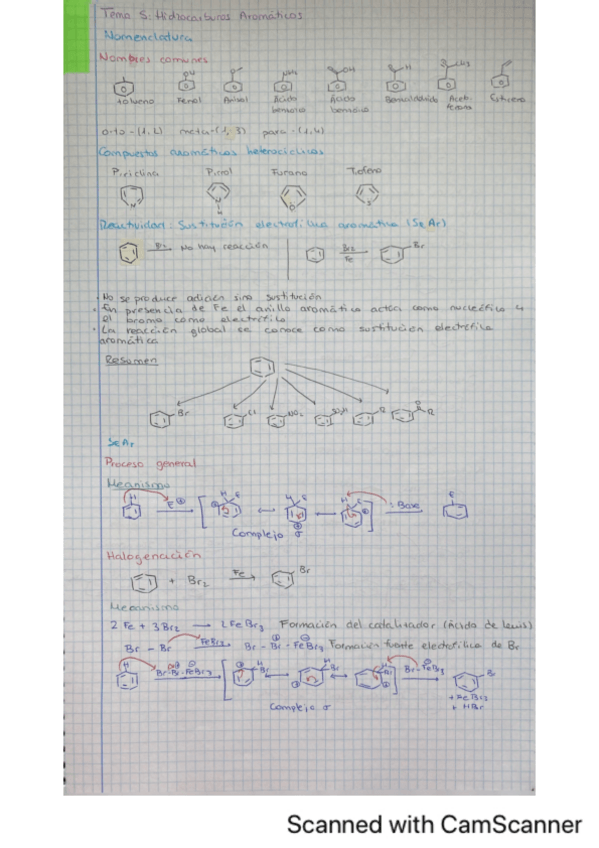 Tema 5: Hidrocarburos Aromáticos
Nomenclatura
Nombres comunes
OH NH2 OH H CH3
tolueno Fenol Anisol Ácido benzoico Ácido benzoico Benzaldehído Acetofenona Estireno
orto-(1,2) meta-(1,3) para-(1,4)
Compuestos aromáticos heterocíclicos
Piridina Pirrol Furano Tiofeno
Reactividad: Sustitución electrofílica aromática (SEAr)
Br2 No hay reacción Br2 Fe Br
· No se produce adición sino sustitución
· En presencia de Fe el anillo aromático actúa como nucleófilo y
el bromo como electrófilo
· La reacción global se conoce como sustitución electrófila
aromática
Resumen
Br Cl NO2 SO3H R O R
SEAr
Proceso general
Mecanismo
H E⊕ H E H E H E :Base E
Complejo σ
Halogenación
+ Br2 Fe Br
Mecanismo
2 Fe + 3 Br2 → 2 FeBr3 Formación del catalizador (Ácido de lewis)
Br - Br FeBr3 Br - Br - FeBr3 Formación fuente electrofílica de Br
H Br-Br-FeBr3 H Br H Br H Br Br-FeBr3 Br
+ FeBr3
+ HBr
Complejo σ
Scanned with CamScanner